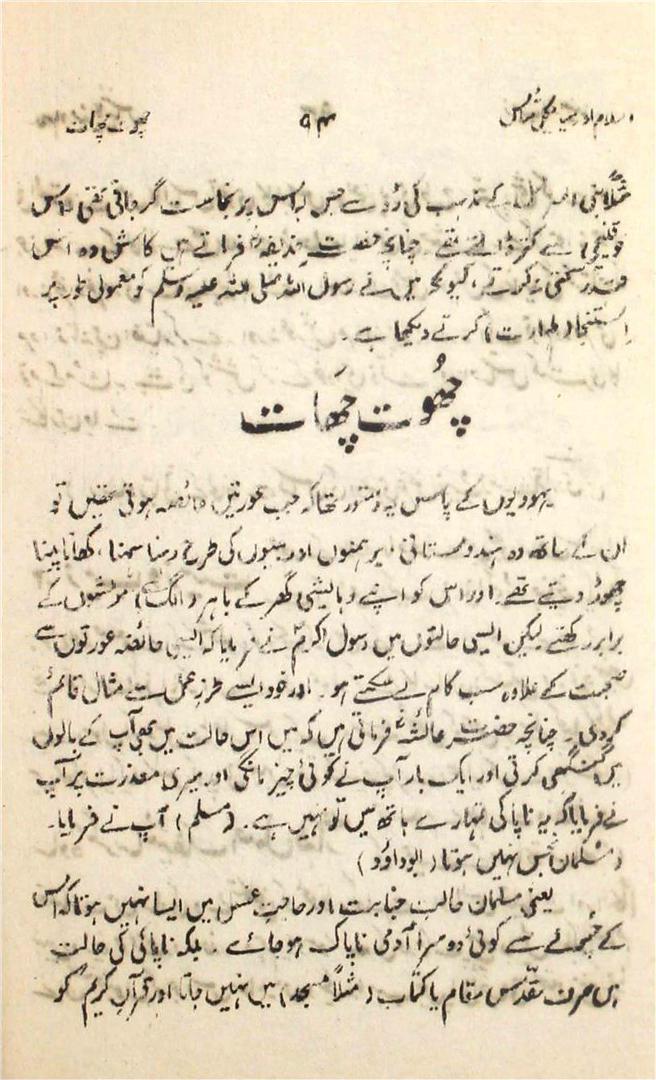 چھوت چھات
۹۴
اسلام اور
مثلاً بنی اسرائیل کے مذہب کی رُو سے جس لباس پر نجاست گر جاتی تھی اس
کو قینچی سے کتر ڈالتے تھے۔ چنانچہ حضرت حذیفہؓ فرماتے ہیں کاش وہ اس
قدر سختی نہ کرتے، کیونکہ میں نے رسول اللہ صلی اللہ علیہ وسلم کو معمولی طور پر
استنجا (طہارت) کرتے دیکھا ہے۔
چھُوت چھَات
یہودیوں کے پاس یہ دستور تھا کہ جب عورتیں حائضہ ہوتی تھیں تو
ان کے ساتھ وہ ہندوستانی برہمنوں اور کی طرح رہنا سہنا، کھانا پینا
چھوڑ دیتے تھے۔ اور اس کو اپنے رہائشی گھر کے باہر (الگ) مویشوں کے
برابر رکھتے لیکن ایسی حالتوں میں رسول اکرمؐ نے فرمایا کہ ایسی حائضہ عورتوں سے
صحبت کے علاوہ سب کام لے سکتے ہو۔ اور خود ایسے طرزِ عمل سے مثال قائم
کر دی۔ چنانچہ حضرت عائشہؓ فرماتی ہیں کہ میں اس حالت میں بھی آپ کے بالوں
میں کنگھی کرتی اور ایک بار آپ نے کوئی چیز مانگی اور میری معذرت پر آپ
نے فرمایا کہ یہ ناپاکی تمہارے ہاتھ میں تو نہیں ہے۔ (مسلم) آپ نے فرمایا۔
مسلمان نجس نہیں ہوتا (ابوداؤد)
یعنی مسلمان حالت جنابت اور حاجتِ غسل میں ایسا نہیں ہوتا کہ اس
کے چُھونے سے کوئی دوسرا آدمی ناپاک ہو جائے۔ بلکہ ناپاکی کی حالت
میں صرف مقدّس مقام یا کتاب (مثلاً مسجد) میں نہیں جاتا اور قرآنِ کریم کو